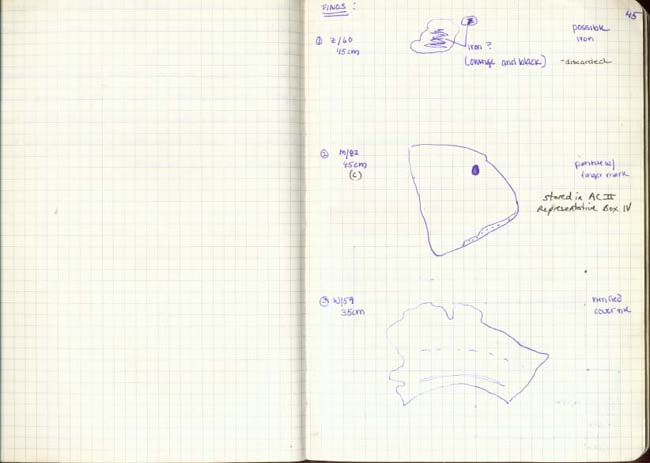 45
FINDS:
① Z/60
45cm
iron?
(orange and black)
possible
iron
-discarded
② M/82
45cm
(C)
pantile w/
finger mark
stored in AC II
Representative Box IV
③ W/59
35cm
vitrified
cover tile